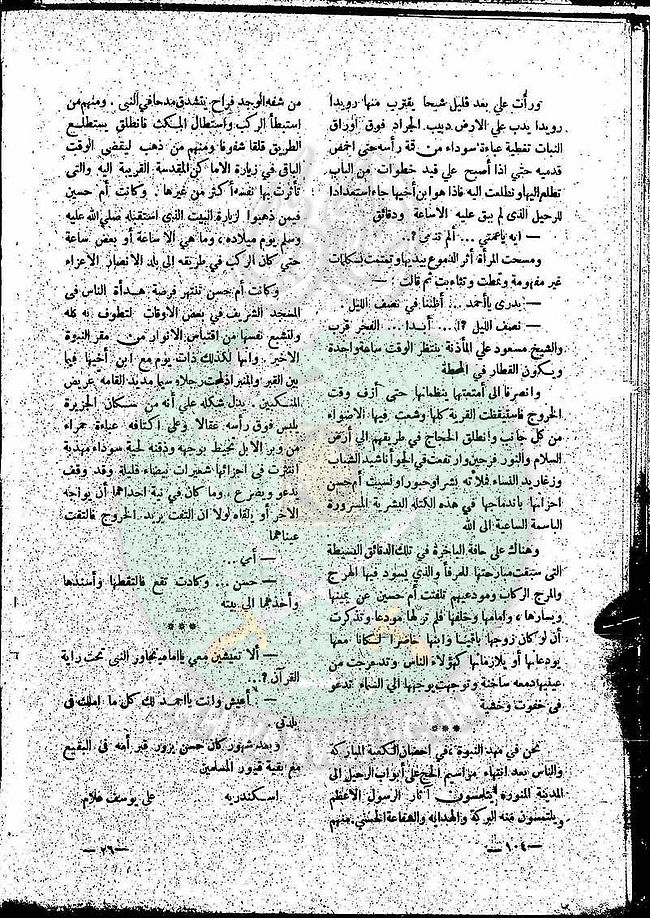 ورأت علي بعد قليل شبحا يقترب منها رويدا
رويدا يدب على الارض دبيب الجراد فوق أوراق
النبات تغطيه عباءة سوداء من قمة رأسه حتى اخمص
قدميه حتى اذا أصبح علي قيد خطوات من الباب
تطلع اليها وتطلعت اليه فاذا هو ابن أخيها جاء استعدادا
للرحيل الذى لم يبق عليه الا ساعة ودقائق
— ايه ياعمتى ... ألم تنمى ؟ ..
ومسحت المرأة أثر الدموع بيديها وتمتمت بكلمات
غير مفهومة وتمطت وتثاءبت ثم قالت : —
— بدرى ياأحمد ... أظننا في نصف الليل .
— نصف الليل ؟! ... أبدا ... الفجر قرب
والشيخ مسعود علي المأذنة ينتظر الوقت ساعة واحدة
ويكون القطار في المحطة
وانصرفا الى أمتعتها ينظمانها حتى أزف وقت
الخروج فاستيقظت القرية كلها وشعت فيها الاضواء
من كل جانب وانطلق الحجاج في طريقهم الي أرض
السلام والنور فرحين وارتفعت في الجو أناشيد الشباب
وزغاريد النساء فملأته بشرا وحبورا ونسيت أم حسن
احزانها باندماجها في هذه الكتلة البشرية المسرورة
الباسمة الساعية إلى الله
وهناك على حافة الباخرة في تلك الدقائق البسيطة
التى سبقت مبارحتها للمرفأ والذي يسود فيها الهرج
والمرج الركاب ومودعيهم تلفتت أم حسين عن يمينها
ويسارها ، وامامها وخلفها فلم تر لها مودعا وتذكرت
أن لو كان زوجها باقيا وابنها حاضرا لكانا معها
يودعانها أو يلازمانها كهؤلاء الناس وتدحرجت من
عينيها دمعة ساخنة وتوجهت بوجهها الي السماء تدعو
فى خفوت وخشية
***
نحن في مهد النبوة ، في احضان الكعبة المباركة
والناس بعد انتهاء مراسيم الحج علي أبواب الرحيل الى
المدينة المنورة يتلمسون آثار الرسول الاعظم
ويلتمسون منه البركة والهداية والشفاعة الحسنى منهم
— ١٠٤ —
من شفه الوجد فراح يتشدق مدحا في النبى . ومنهم من
استبطأ الركب واستطال المكث فانطلق يستطلع
الطريق قلقا شغوفا ومنهم من ذهب ليقضى الوقت
الباقى في زيارة الاماكن المقدسة القريبة اليه والتى
تأثرت بها نفسه أكثر من غيرها . وكانت أم حسين
فيمن ذهبوا لزيارة البيت الذى استقبله صلي الله عليه
وسلم يوم ميلاده ، وما هى الا ساعة أو بعض ساعة
حتي كان الركب في طريقه الى بلد الانصار الاعزاء
وكانت أم حسن تنتهز فرصة هدأة الناس فى
المسجد الشريف في بعض الاوقات لتطوف به كله
ولتشبع نفسها من اقتباس الانوار من مقر النبوة
الاخير . وانها لكذلك ذات يوم مع ابن أخيها فيما
بين القبر والمنبر اذ لمحت رجلا وسيما مديد القامة عريض
المنكبين . يدل شكله على أنه من سكان الجزيرة
يلبس فوق رأسه عقالا وعلى اكتافه عباءة حمراء
من وبر الابل تحيط بوجهه وذقنه لحية سوداء مهذبة
انتثرت فى اجزائها شعيرات بيضاء قليلة وقد وقف
يدعو ويضرع . وما كان في نية احداهما أن يواجه
الآخر أو يلقاه لولا ان التفت يريد الخروج فالتقت
عيناهما
— أمى ...
— حسن ... وكادت تقع فالتقطها وأسندها
وأخذهما الى بيته
***
— ألا تعيشين معي ياامام بجاور النبى تحت راية
القرآن ؟ ...
— أعيش وانت يااحمد لك كل ما املك فى
بلدتى .
وبعد شهور كان حسن يزور قبر أمه فى البقيع
مع بقية قبور المسلمين
اسكندريه على يوسف علام
— ٢٦ —